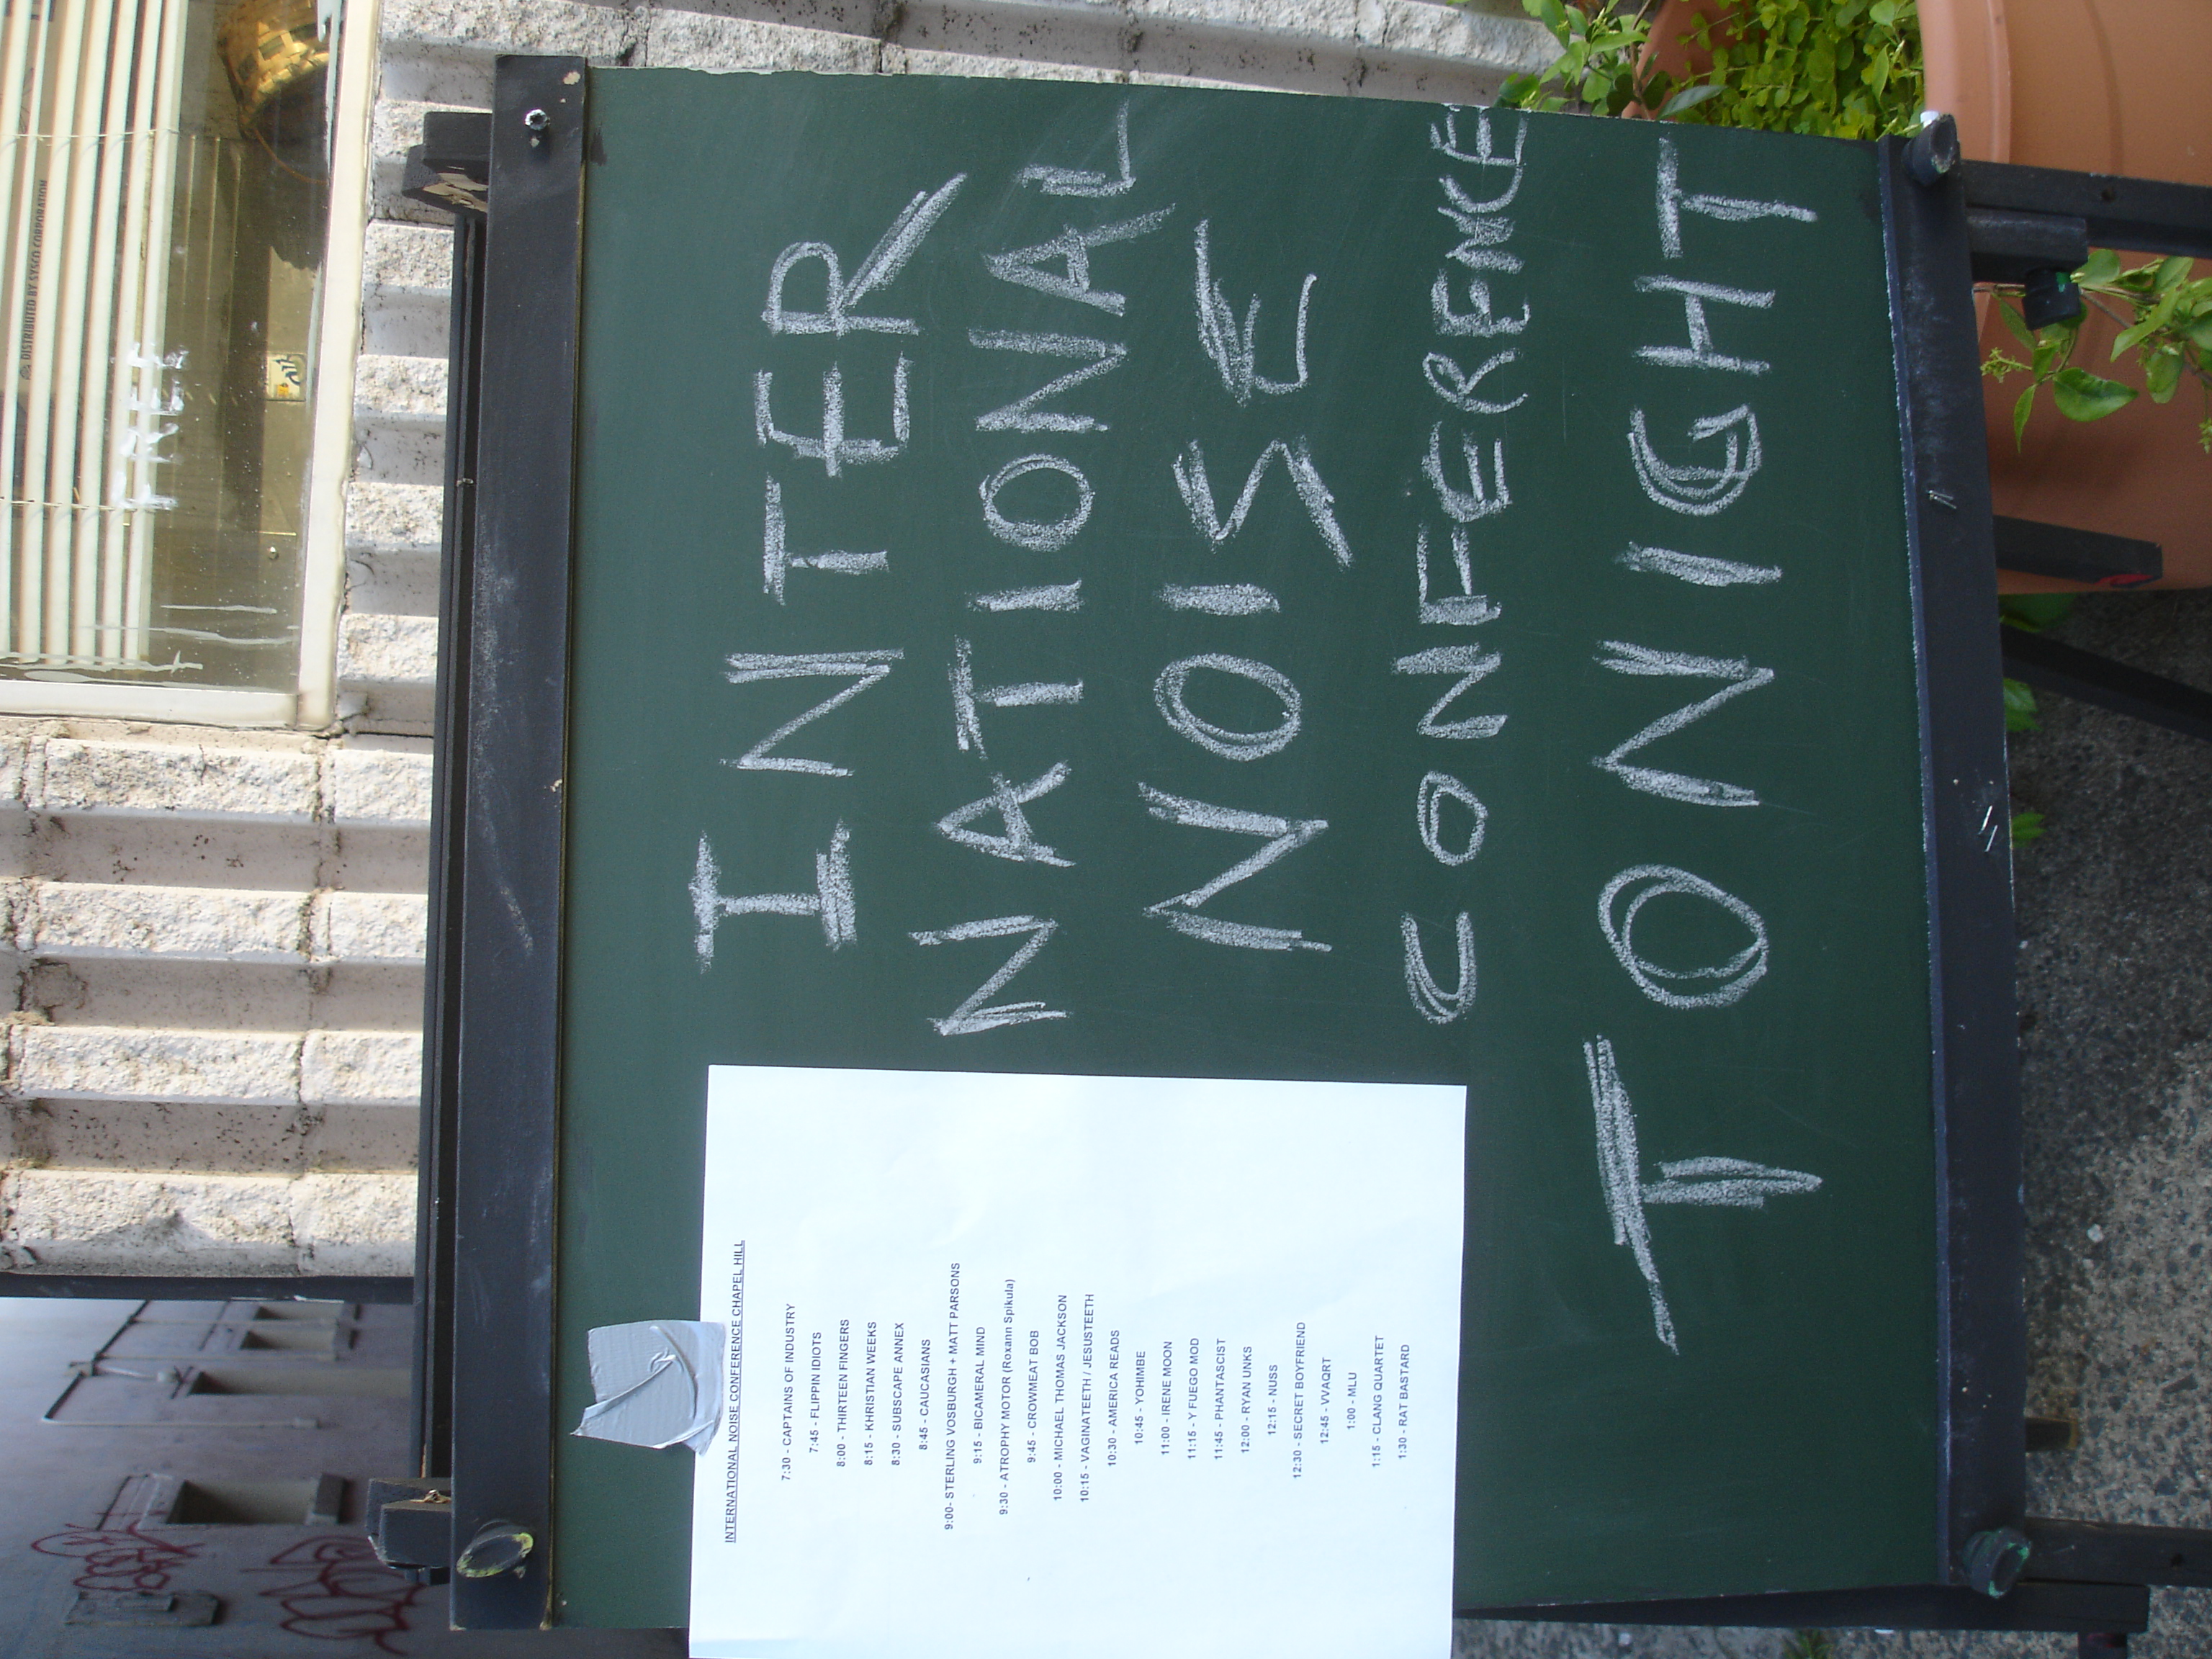 INTER
NATIONAL
NOISE
CONFERENCE
TONIGHT
INTERNATIONAL NOISE CONFERENCE CHAPEL HILL
7:30 - CAPTAINS OF INDUSTRY
7:45 - FLIPPIN IDIOTS
8:00 - THIRTEEN FINGERS
8:15 - KHRISTIAN WEEKS
8:30 - SUBSCAPE ANNEX
8:45 - CAUCASIANS
9:00- STERLING VOSBURGH + MATT PARSONS
9:15 - BICAMERAL MIND
9:30 - ATROPHY MOTOR (Roxann Spikula)
9:45 - CROWMEAT BOB
10:00 - MICHAEL THOMAS JACKSON
10:15 - VAGINATEETH / JESUSTEETH
10:30 - AMERICA READS
10:45 - YOHIMBE
11:00 - IRENE MOON
11:15 - Y FUEGO MOD
11:45 - PHANTASCIST
12:00 - RYAN UNKS
12:15 - NUSS
12:30 - SECRET BOYFRIEND
12:45 - VVAQRT
1:00 - MLU
1:15 - CLANG QUARTET
1:30 - RAT BASTARD
DISTRIBUTED BY SYSCO CORPORATION